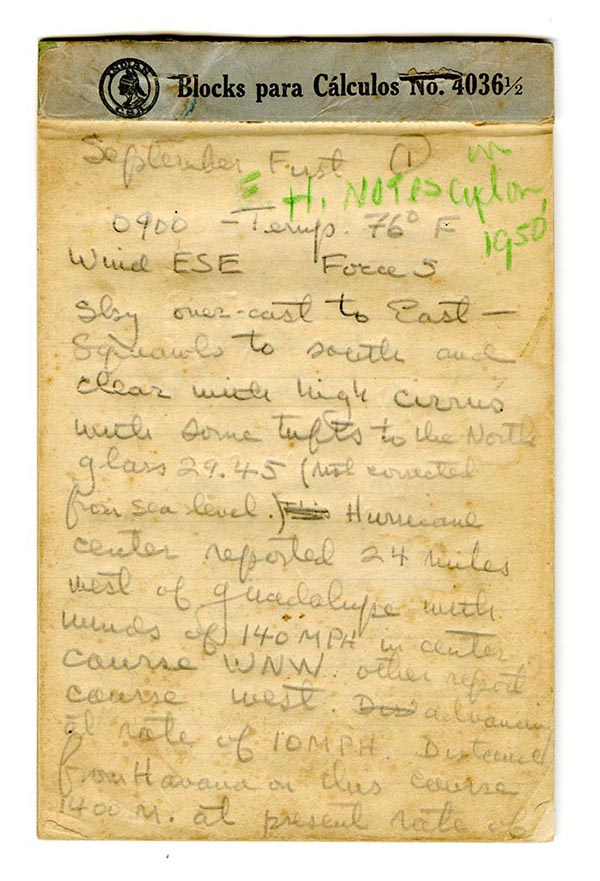 INDIAN
Blocks para Cálculos No. 4036½
September First (1)
E H. NOTES Cyclon, 1950
0900 - Temp. 76° F
Wind ESE Force 5
Sky over-cast to East -
Squawls to south and
clear with high cirrus
with some tufts to the North
glass 29.45 (not corrected
from sea level.) Hurricane
center reported 24 miles
west of Guadalupe with
winds of 140 MPH in center
course WNW. other report
course west. advancing
at rate of 10 MPH. Distance
from Havana on this course
1400 M. at present rate of